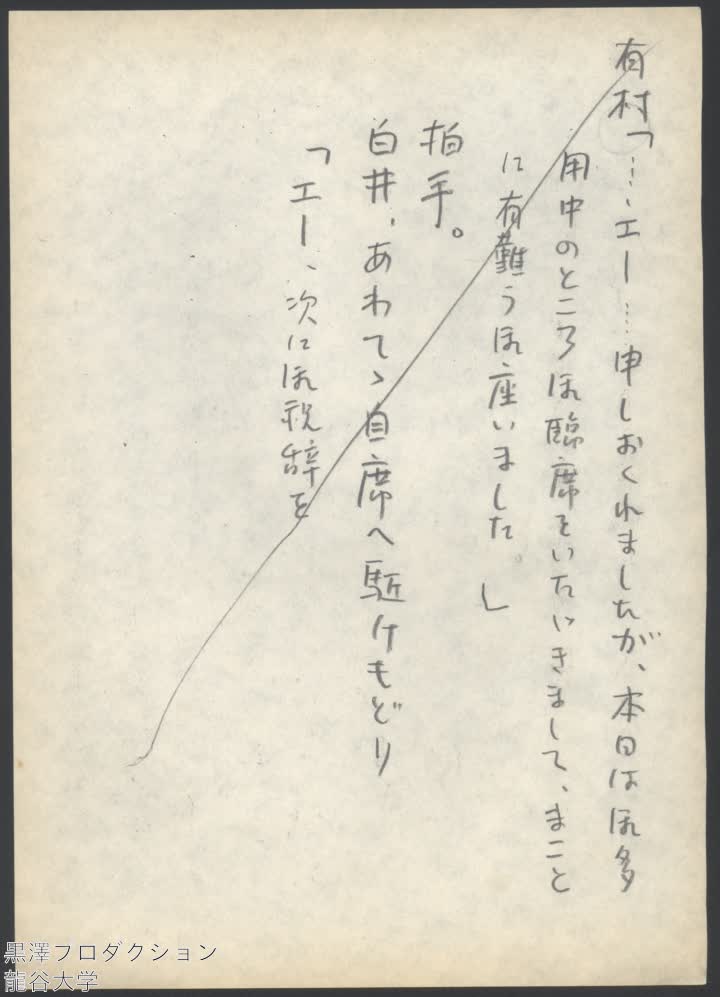 有村「……エー……申しおくれましたが、本日は御多
用中のところ御臨席をいたゞきまして、まこと
に有難う御座いました。」
拍手。
白井、あわてゝ自席へ駈けもどり
「エー、次に御祝辞を
黒澤プロダクション
龍谷大学